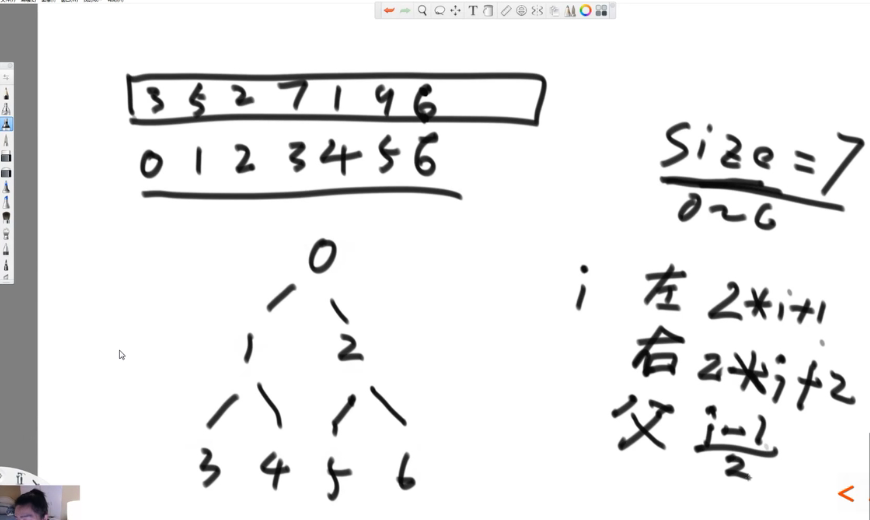 3 5 2 7 1 9 6
0 1 2 3 4 5 6
Size = 7
0~6
0
1 2
3 4 5 6
i 左 2*i+1
右 2*i+2
父 i-1
2